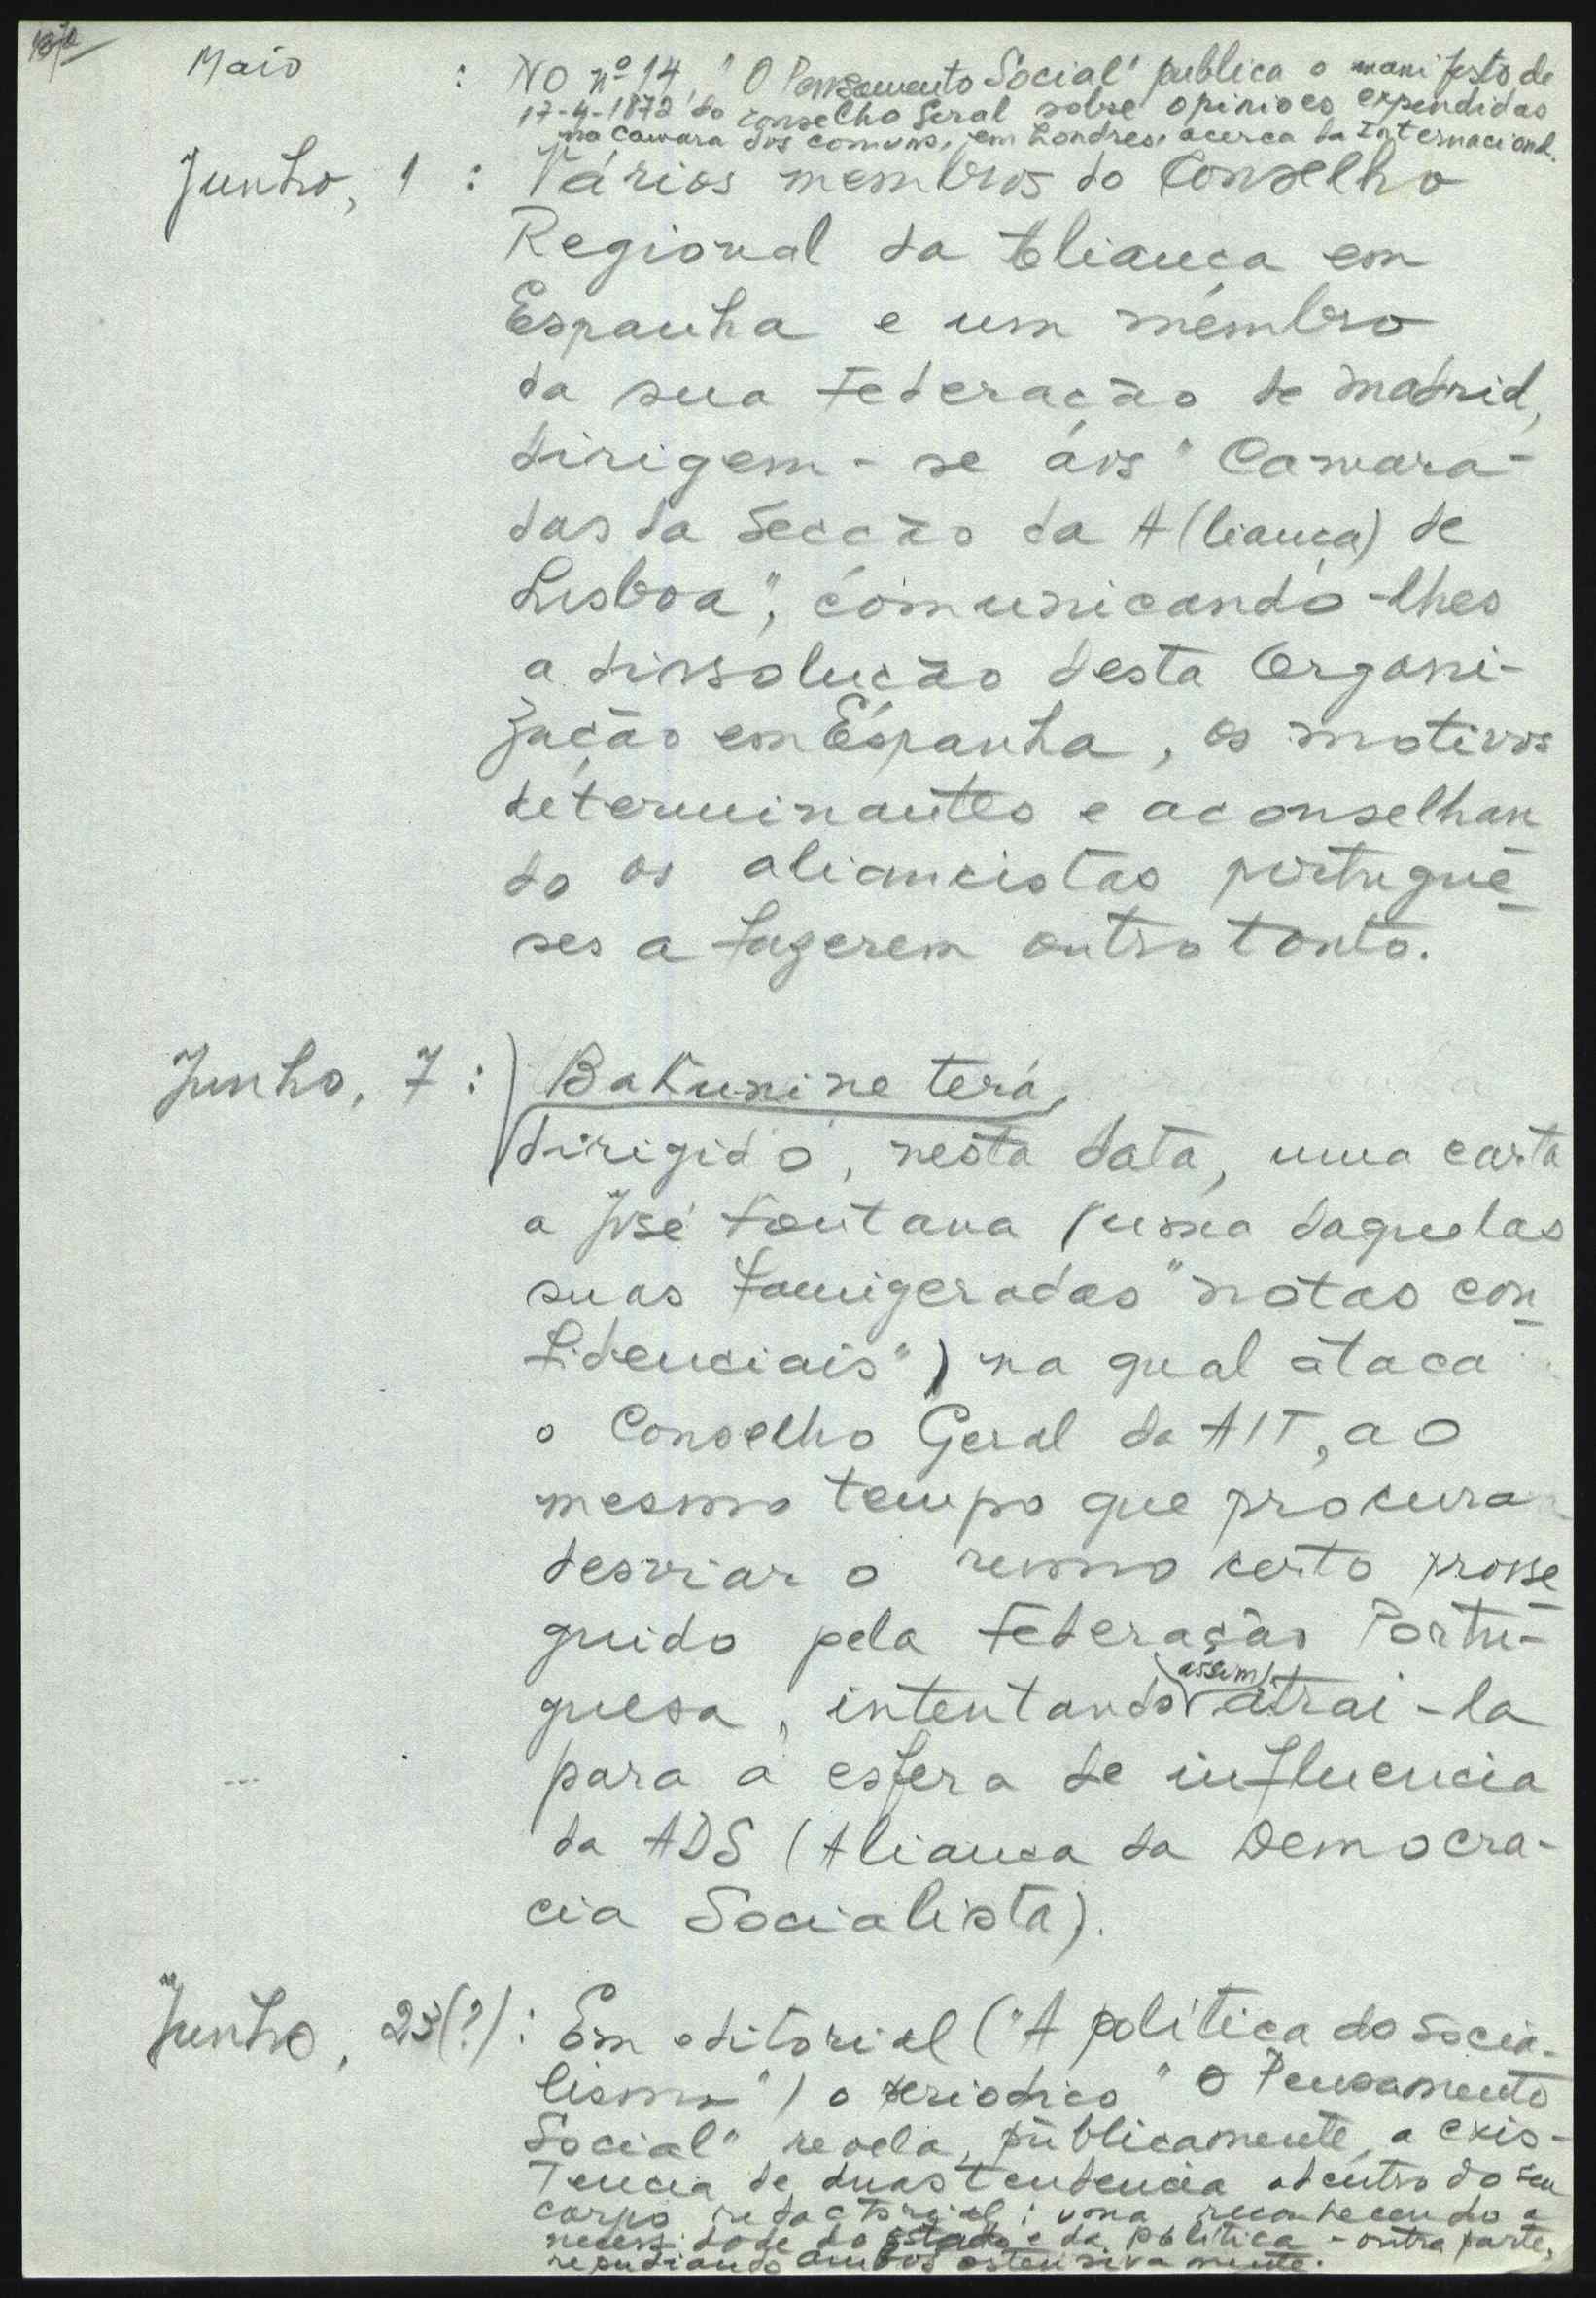 Maio : No nº 14, "O Pensamento Social" publica o manifesto de
17-4-1872 do conselho Geral sobre opiniões expendidas
na camara dos comuns, em Londres, acerca da Internacional.
Junho, 1 : Vários membros do Conselho
Regional da Aliança em
Espanha e um membro
da sua Federação de Madrid,
dirigem-se áos "Camara-
das da Secção da A(liança) de
Lisboa", comunicando-lhes
a dissolução desta Organi-
zação em Espanha, os motivos
determinantes e aconselhan
do os aliancistas portuguê-
ses a fazerem outro tanto.
Junho, 7 : Bakunine terá
dirigido, nesta data, uma carta
a José Fontana (uma daquelas
suas famigeradas "notas con-
fidenciais") na qual ataca
o Conselho Geral da AIT, ao
mesmo tempo que procura
desviar o rumo certo prosse-
guido pela Federação Portu-
guesa, intentando assim atrai-la
para a esfera de influencia
da ADS (Aliança da Democra-
cia Socialista).
Junho, 23(?) : Em editorial ("A política do socia-
lismo") o periodico "O Pensamento
Social" revela, públicamente, a exis-
tencia de duas tendencia adentro do seu
corpo redactorial: uma reconhecendo a
necessidade do estado e da política - outra parte,
repudiando ambos ostensivamente.